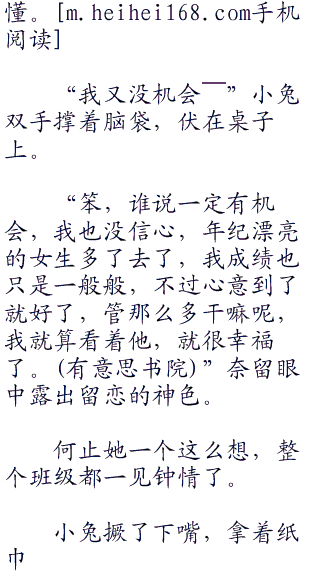 懂。[m.heihei168.com手机
阅读]
“我又没机会——”小兔
双手撑着脑袋，伏在桌子
上。
“笨，谁说一定有机
会，我也没信心，年纪漂亮
的女生多了去了，我成绩也
只是一般般，不过心意到了
就好了，管那么多干嘛呢，
我就算看着他，就很幸福
了。(有意思书院)”奈留眼
中露出留恋的神色。
何止她一个这么想，整
个班级都一见钟情了。
小兔撅了下嘴，拿着纸
巾